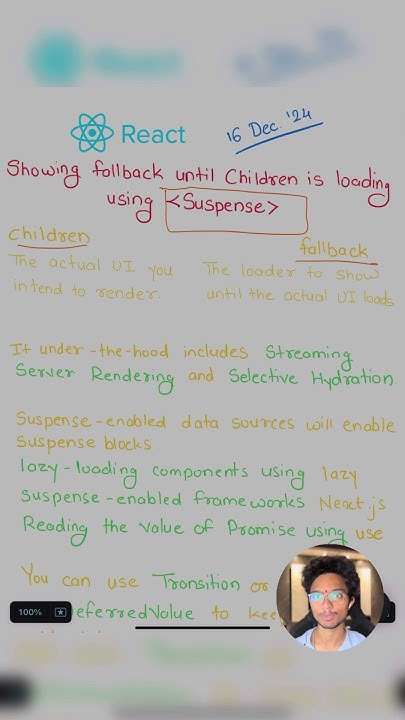 React
16 Dec. '24
Showing fallback until Children is loading
using <Suspense>
Children
fallback
The actual UI you
intend to render.
The loader to show
until the actual UI loads
It under-the-hood includes Streaming
Server Rendering and Selective Hydration
Suspense-enabled data sources will enable
Suspense blocks
lazy-loading components using lazy
Suspense-enabled frameworks Next.js
Reading the value of Promise using use
You can use Transition or
eferredValue to kee
100%